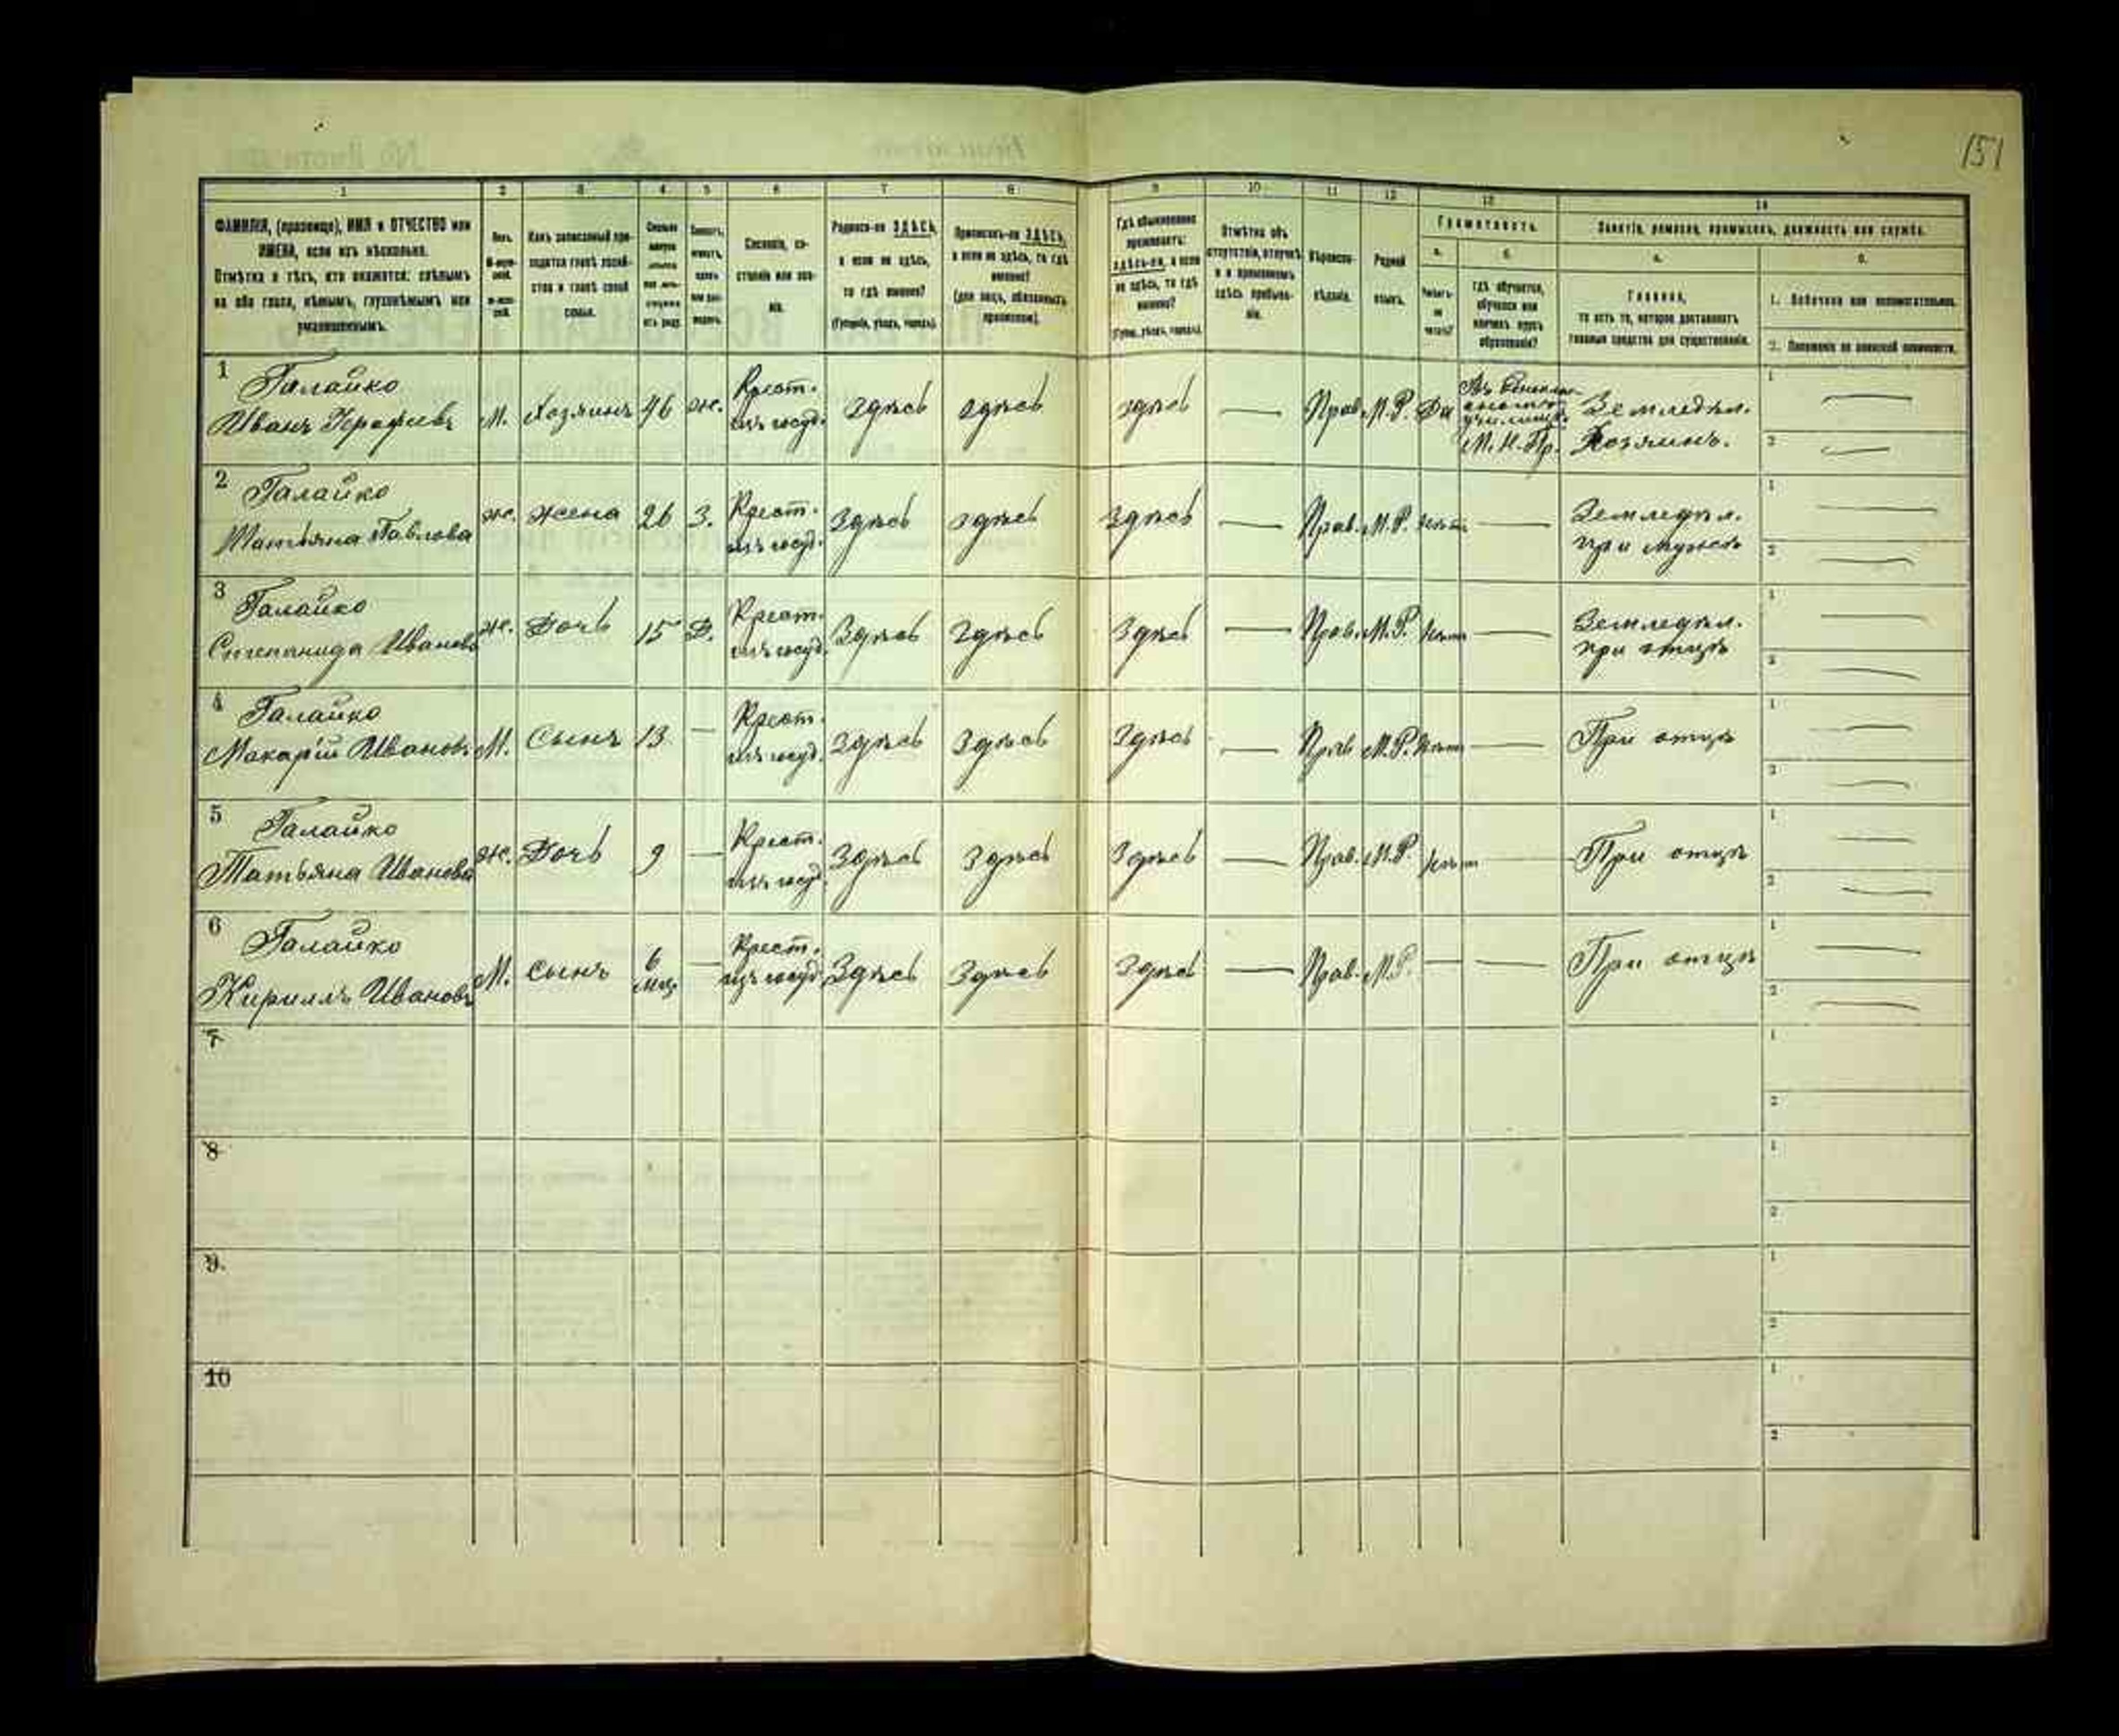 151
1 2 3 4 5 6 7 8 9 10 11 12 13 14
ФАМИЛІЯ, (прозвище), ИМЯ и ОТЧЕСТВО или
ИМЕНА, если ихъ нѣсколько.
Отмѣтка о тѣхъ, кто окажется: слѣпымъ
на оба глаза, нѣмымъ, глухонѣмымъ или
умалишеннымъ.
Полъ.
М-муж-
ской.
Ж-жен-
скій.
Какъ записанный при-
ходится главѣ хозяй-
ства и главѣ своей
семьи.
Сословіе, со-
стояніе или зва-
ніе.
Родился-ли ЗДѢСЬ,
а если не здѣсь,
то гдѣ именно?
(Губернія, уѣздъ, городъ).
Приписанъ-ли ЗДѢСЬ,
а если не здѣсь, то гдѣ
именно?
(для лицъ, обязанныхъ
припискою).
Гдѣ обыкновенно
проживаетъ:
здѣсь-ли, а если
не здѣсь, то гдѣ
именно?
(Губ., уѣздъ, городъ).
Отмѣтка объ
отсутствіи, отлучкѣ
и о временномъ
здѣсь пребыва-
ніи.
Вѣроиспо-
вѣданіе.
Родной
языкъ.
Грамотность.
а.
Умѣетъ-
ли
читать?
б.
гдѣ обучается,
обучался или
кончилъ курсъ
образованія?
Занятіе, ремесло, промыселъ, должность или служба.
а.
Главное,
то есть то, которое доставляетъ
главныя средства для существованія.
б.
1. Побочное или вспомогательное.
2. Положеніе по воинской повинности.
1 Галайко
Иванъ М. Хозяинъ 46 ж. Крест. изъ госуд. здѣсь здѣсь здѣсь — Прав. М.Р. Да
училищѣ
М.Н.Пр. Земледѣл.
Хозяинъ. 1 — 2 —
2 Галайко
Татьяна Павлова ж. жена 26 З. Крест. изъ госуд. здѣсь здѣсь здѣсь — Прав. М.Р. Нѣтъ — Земледѣл.
при мужѣ 1 — 2 —
3 Галайко
Степанида Иванова ж. Дочь 15 Д. Крест. изъ госуд. Здѣсь Здѣсь Здѣсь — Прав. М.Р. Нѣтъ — Земледѣл.
при отцѣ 1 — 2 —
4 Галайко
Макарій Ивановъ М. Сынъ 13 — Крест. изъ госуд. Здѣсь Здѣсь Здѣсь — Прав. М.Р. Нѣтъ — При отцѣ 1 — 2 —
5 Галайко
Татьяна Иванова ж. Дочь 9 — Крест. изъ госуд. Здѣсь Здѣсь Здѣсь — Прав. М.Р. Нѣтъ — При отцѣ 1 — 2 —
6 Галайко
Кириллъ Ивановъ М. сынъ 6 мѣс. — Крест. изъ госуд. Здѣсь Здѣсь Здѣсь — Прав. М.Р. — — При отцѣ 1 — 2 —
7 1 2
8 1 2
9. 1 2
10 1 2